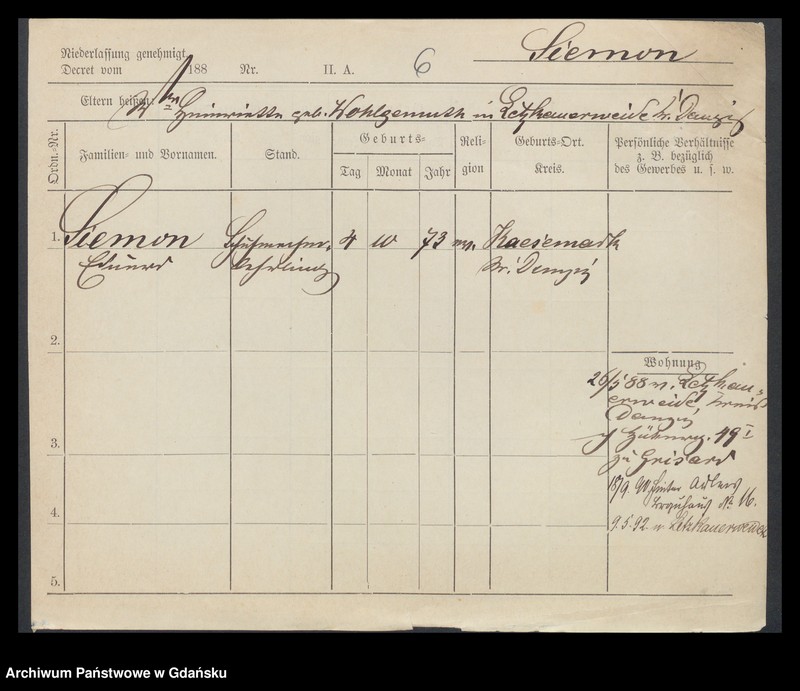 Siemon
Niederlassung genehmigt
Decret vom 188 Nr. II. A. 6
Eltern heißen: Henriette geb. Wohlgemuth in Letzkauerweide Kr. Danzig
Ordn.-Nr. Familien- und Vornamen. Stand. Geburts- Tag Monat Jahr Religion Geburts-Ort. Kreis. Persönliche Verhältnisse
z. B. bezüglich
des Gewerbes u. s. w.
1. Siemon Schuhmacher- 4 10 73 Kaesemark
Eduard lehrling Kr. Danzig
2.
Wohnung
26/5 88 n. Letzkau-
erweide, Kreis
Danzig
49 I
zu Grisard
3.
18/9. 90 Hinter Adlers
Brauhaus No 16.
4.
9.5.92. n. Letzkauerweide
5.
Archiwum Państwowe w Gdańsku